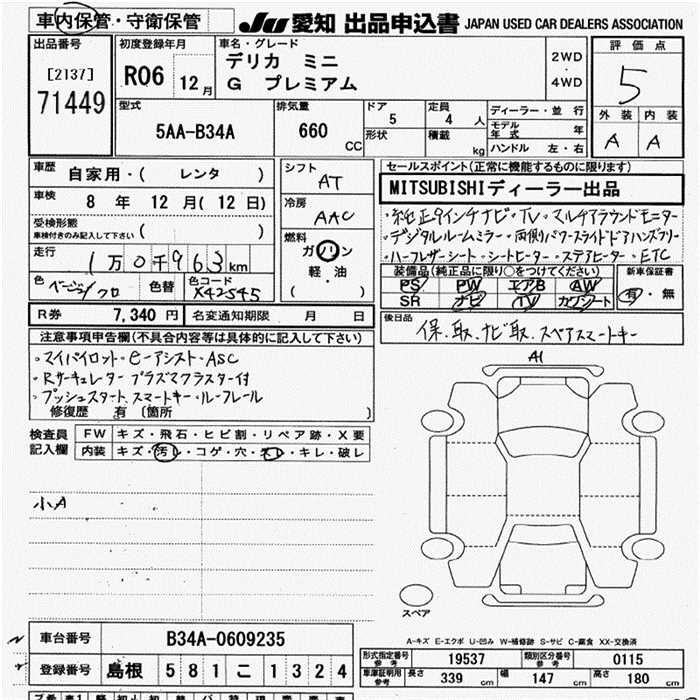 車内保管・守衛保管
JU 愛知 出品申込書 JAPAN USED CAR DEALERS ASSOCIATION
出品番号
[2137]
71449
初度登録年月
R06 12月
車名・グレード
デリカ ミニ
G プレミアム
2WD
・
4WD
評価点
5
外装 内装
A A
型式
5AA-B34A
排気量
660 CC
ドア
5
形状
定員
4 人
積載 kg
ディーラー・並行
モデル年式 年
ハンドル 左・右
車歴 自家用・( レンタ )
車検 8 年 12 月 (12 日)
受検形態
車検付きのみ記入して下さい ( )
走行 1万0千963km
色 ベージュ/クロ 色替 色コード X42545
シフト
AT
冷房
AAC
燃料
ガソリン
軽・油
( )
R券 7,340 円 名変通知期限 月 日
セールスポイント(正常に機能するものに限ります)
MITSUBISHIディーラー出品
・純正9インチナビ・TV・マルチアラウンドモニター
・デジタルルームミラー・両側パワースライドドアハンズフリー
・ハーフレザーシート・シートヒーター・ステアヒーター・ETC
装備品(純正品に限り○をつけてください)
PS PW エアB AW
SR ナビ TV カワシート
新車保証書
有・無
後日品
保、取、ナビ取、スペアスマートキー
注意事項申告欄(不具合内容等は具体的に記入して下さい)
・マイパイロット・e-アシスト・ASC
・Rサーキュレーター プラズマクラスター付
・プッシュスタート スマートキー・ルーフレール
修復歴 有 [箇所 ]
検査員記入欄
FW キズ・飛石・ヒビ割・リペア跡・X要
内装 キズ・汚レ・コゲ・穴・スレ・キレ・破レ
小A
A1
スペア
A-キズ E-エクボ U-凹み W-補修跡 S-サビ C-腐食 XX-交換済
車台番号 B34A-0609235
登録番号 島根 581 こ 1324
型式指定番号 参考 19537 類別区分番号 参考 0115
車庫証明用 参考 長さ 339 cm 幅 147 cm 高さ 180 cm